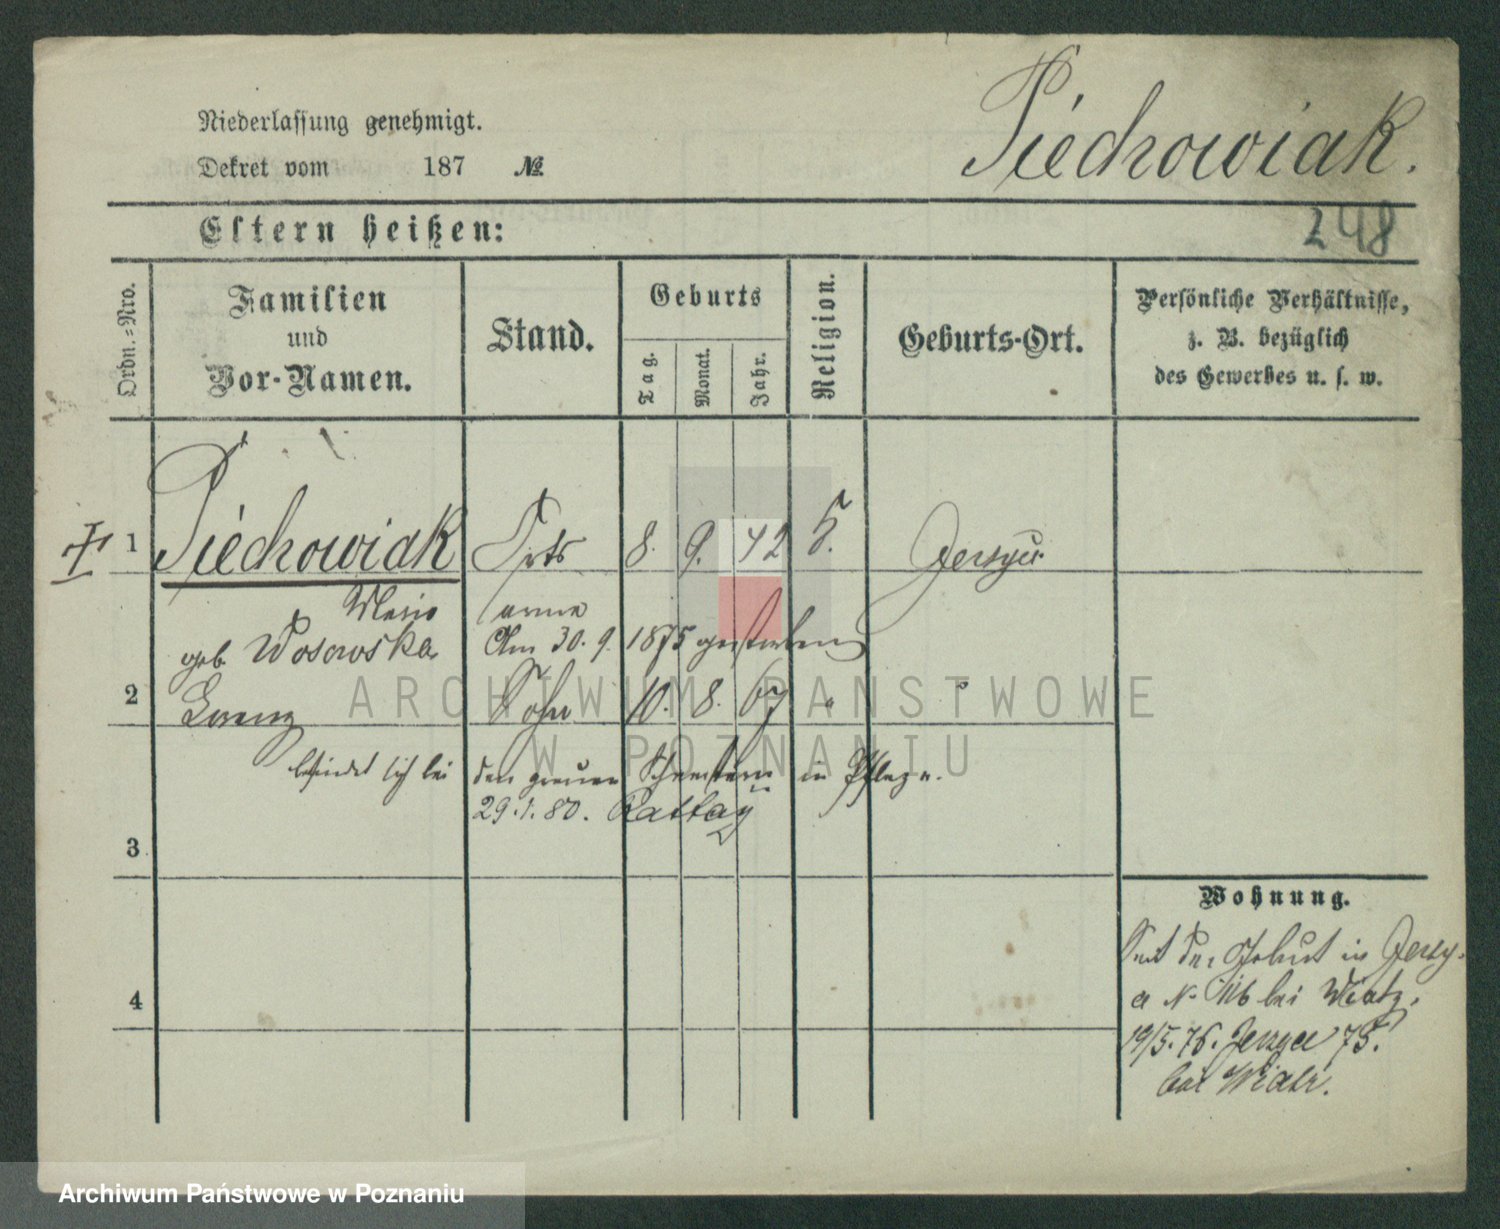 Niederlassung genehmigt.
Dekret vom 187 №
Piechowiak.
Eltern heißen:
248
Ordn.-Nro.
Familien
und
Vor-Namen.
Stand.
Geburts
Tag.
Monat.
Jahr.
Religion.
Geburts-Ort.
Persönliche Verhältnisse,
z. B. bezüglich
des Gewerbes u. s. w.
1 Piechowiak Orts 8. 9. 42
arme
geb Wosowska Am 30. 9. 1875 gestorben
2 Lorenz Sohn 10. 8. 67 "
befindet sich bei den grauen Schwestern in Pflege.
29.1.80. Rattay
3
4
Wohnung.
Seit der Geburt in Jerzy-
bei
19/5.76. Jerzyce 75.
bei Wiatr.
ARCHIWUM PAŃSTWOWE
W POZNANIU
Archiwum Państwowe w Poznaniu